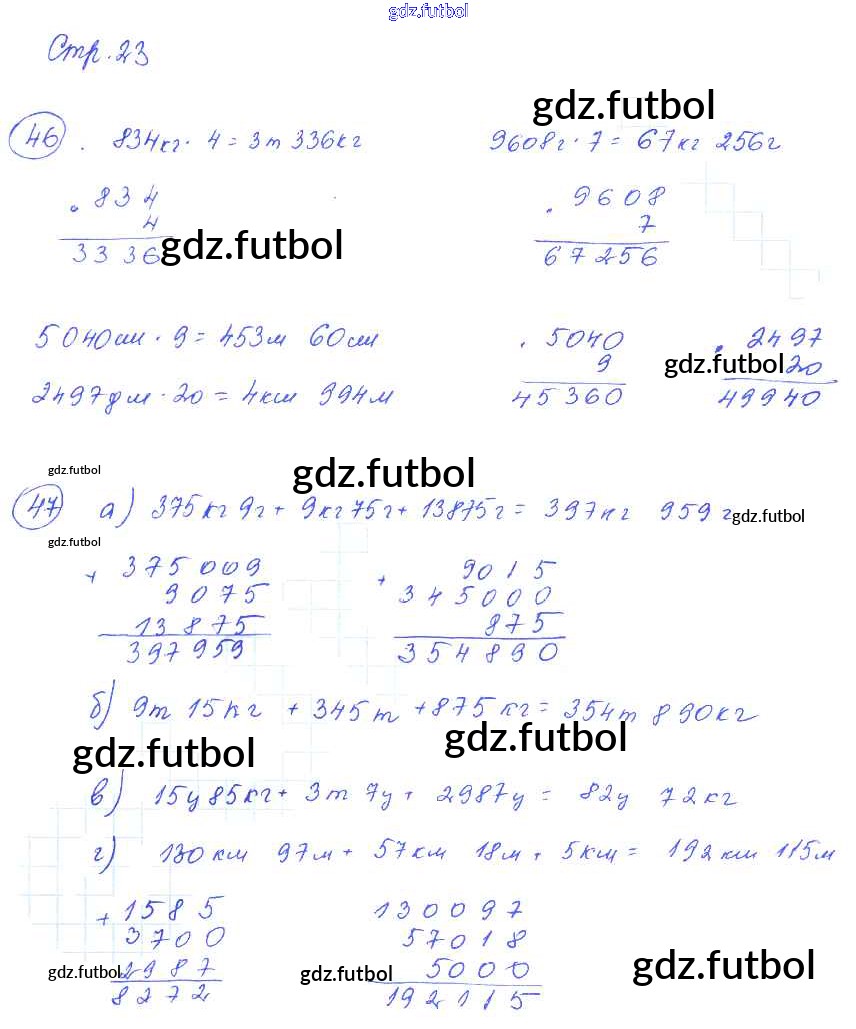 gdz.futbol
Стр. 23
gdz.futbol
46. 834кг · 4 = 3т 336кг
9608г · 7 = 67кг 256г
· 834
4
3336
gdz.futbol
· 9608
7
67256
5040см · 9 = 453м 60см
· 5040
9
45360
· 2497
20
49940
gdz.futbol
2497дм · 20 = 4км 994м
gdz.futbol
gdz.futbol
47 а) 375кг 9г + 9кг 75г + 13875г = 397кг 959г
gdz.futbol
gdz.futbol
+ 375009
9075
13875
397959
+ 9015
345000
875
354890
б) 9т 15кг + 345т + 875кг = 354т 890кг
gdz.futbol
gdz.futbol
в) 15ц 85кг + 3т 7ц + 2987ц = 82ц 72кг
г) 130км 97м + 57км 18м + 5км = 192км 115м
+ 1585
3700
2987
8272
gdz.futbol
130097
57018
5000
192115
gdz.futbol
gdz.futbol